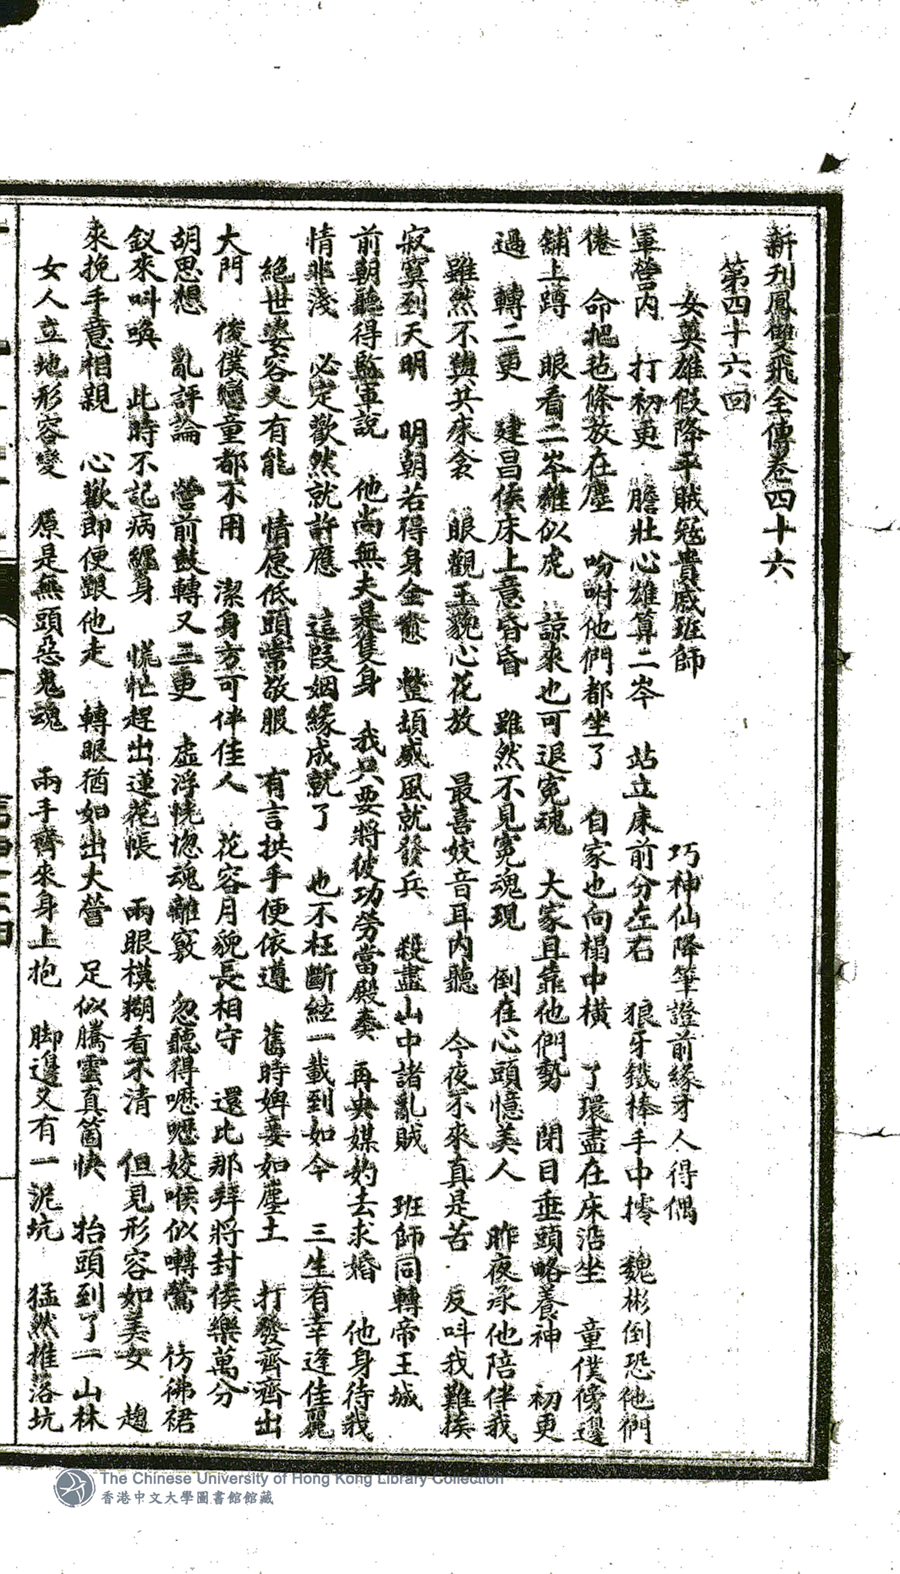 新刋鳳雙飛全傳卷四十六
第四十六回
女英雄假降平賊寇貴戚班師　巧神仙降筆證前緣才人得偶
軍營內　打初更　膽壯心雄算二岑　站立床前分左右　狼牙鐵棒手中擰　魏彬倒恐他們
倦　命把毡條放在塵　吩咐他們都坐了　自家也向榻中橫　了環盡在床沿坐　童僕傍邊
舖上蹲　眼看二岑雖似虎　諒來也可退寃魂　大家且靠他們勢　閉目垂頭略養神　初更
過　轉二更　建昌侯床上意昏昏　雖然不見寃魂現　倒在心頭憶美人　昨夜承他陪伴我
雖然不與共床衾　眼觀玉貌心花放　最喜姣音耳內聽　今夜不來真是苦　反叫我難挨
寂寞到天明　明朝若得身全愈　整頓威風就發兵　殺盡山中諸亂賊　班師同轉帝王城
前朝聽得監軍說　他尚無夫是隻身　我只要將彼功勞當殿奏　再央媒妁去求婚　他身待我
情非淺　必定歡然就許應　這段姻緣成就了　也不枉斷絃一載到如今　三生有幸逢佳麗
絕世姿容又有能　情愿低頭常敬服　有言拱手便依遵　舊時婢妾如塵土　打發齊齊出
大門　俊僕孌童都不用　潔身方可伴佳人　花容月貌長相守　還比那拜將封侯樂萬分
胡思想　亂評論　營前鼓轉又三更　虛浮恍惚魂離竅　忽聽得嚦嚦姣喉似囀鶯　彷彿裙
釵來呌喚　此時不記病纏身　慌忙趕出蓮花帳　兩眼模糊看不清　但見形容如美女　趨
來挽手意相親　心歡即便跟他走　轉眼猶如出大營　足似騰雲真箇快　抬頭到了一山林
女人立地形容變　原是無頭惡鬼魂　兩手齊來身上抱　脚邊又有一泥坑　猛然推落坑
The Chinese University of Hong Kong Library Collection
香港中文大學圖書館館藏